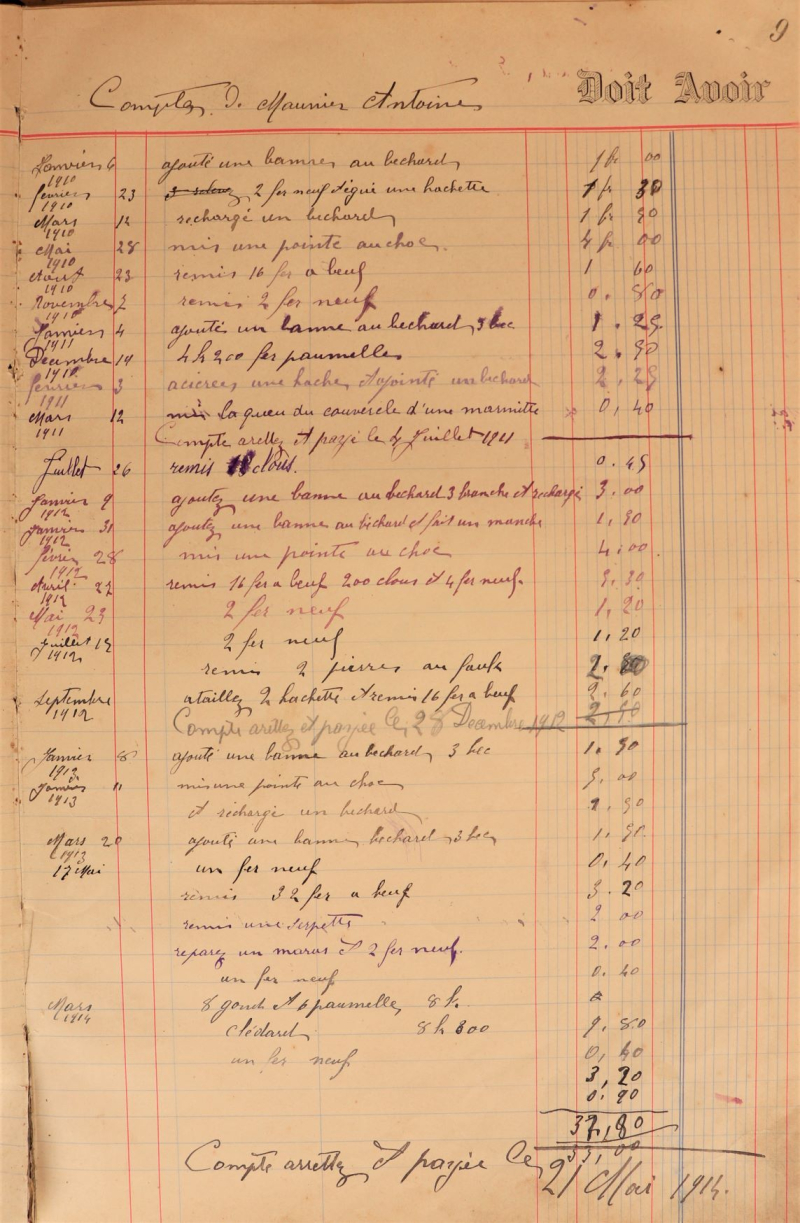 9
Comptes de Maunier Antoine Doit Avoir
Janvier 6 1910 ajouté une bannes au bechard 1 fr 00
février 23 1910 2 fer neuf et égui une hachette 1 fr 30
Mars 12 1910 rechargé un bechard 1 fr 30
Mai 28 1910 mis une pointe au choc 4 fr 00
Aout 23 1910 remis 16 fer a beuf 1 60
Novembre 2 1910 remis 2 fer neuf 0. 80
Janvier 4 1911 ajouté un banne au bechard 3 bec 1. 25
Decembre 14 1910 4 k 200 fer paumelles 2. 90
février 3 1911 acierees une hache et ajointé un bechard 2. 25
Mars 12 1911 mis la queu du couvercle d'une marmitte 0, 40
Compte arettez et payé le 4 Juillet 1911
Juillet 26 remis clous. 0. 45
Janvier 9 1912 ajoutez une banne au bechard 3 branche et rechargé 3. 00
Janvier 31 1912 ajoutez une banne au bechard et fait un manche 1, 30
février 28 1912 mis une pointe au choc 4. 00
Avril 27 1912 remis 16 fer a beuf 200 clous et 4 fer neuf.
Mai 23 1912 2 fer neuf 1, 20
Juillet 15 1912 2 fer neuf 1. 20
remis 2 pierres au 2.
Septembre 1912 ataillez 2 hachette et remis 16 fer a beuf 2. 60
Compte arettez et payée le, 28 Decembre 1912
Janvier 8 1913 ajouté une banne au bechard 3 bec 1. 30
Janvier 11 1913 mis une pointe au choc 5. 00
et rechargé un bechard 1. 30
Mars 20 1913 ajouté une banne bechard 3 bec 1. 30
17 Mai un fer neuf 0. 40
remis 32 fer a beuf 3. 20
remis une serpette 2 00
reparez un marus et 2 fer neuf. 2. 00
un fer neuf 0. 40
Mars 1914 8 gond et 6 paumelles 8 k.
clédard 8 k 300 9. 80
un fer neuf 0, 40
3, 20
0. 90
37, 80
33, 00
Compte arrettez et payée le, 21 Mai 1914.